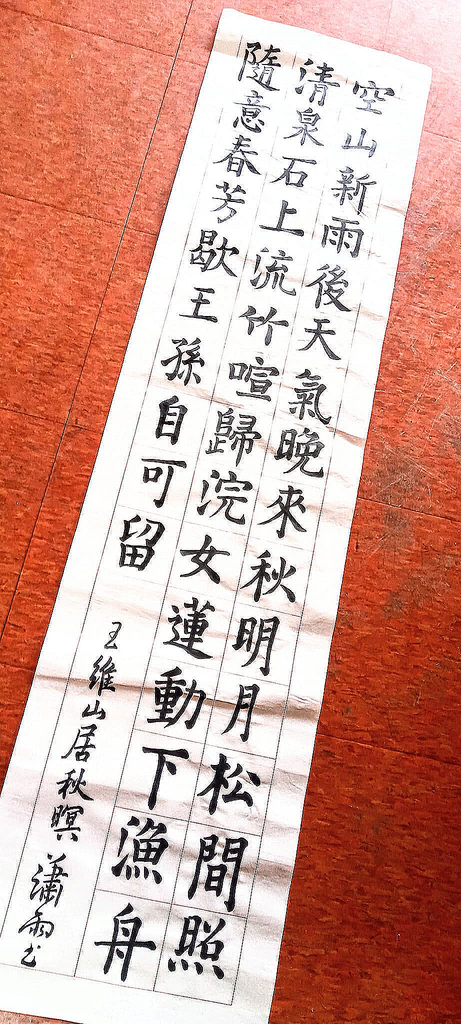 空山新雨後天氣晚來秋明月松間照
清泉石上流竹喧歸浣女蓮動下漁舟
隨意春芳歇王孫自可留
王維山居秋暝 瀟雨书